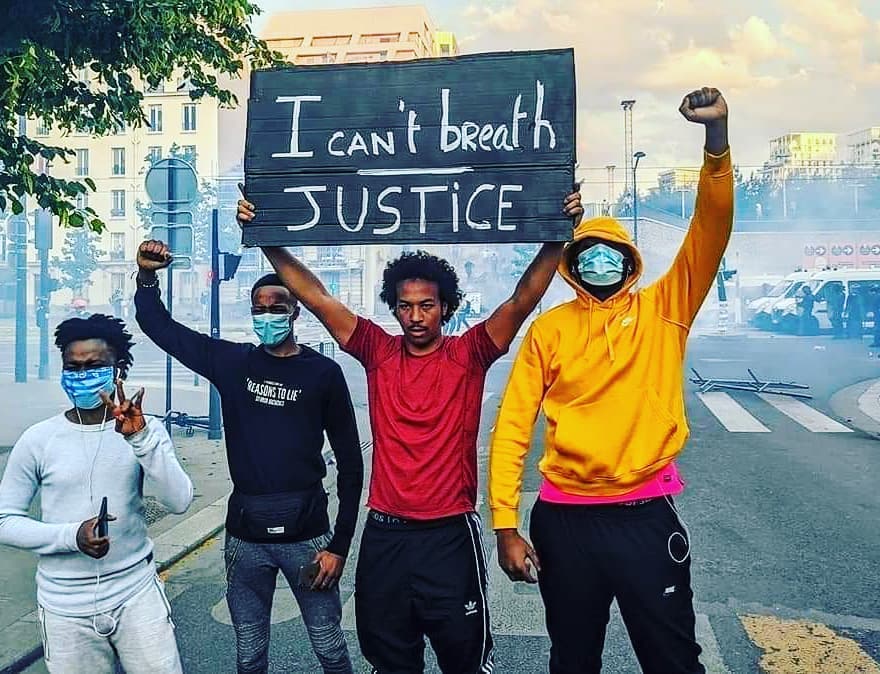 I can't breath
JUSTiCE
'REASONS TO LIE'